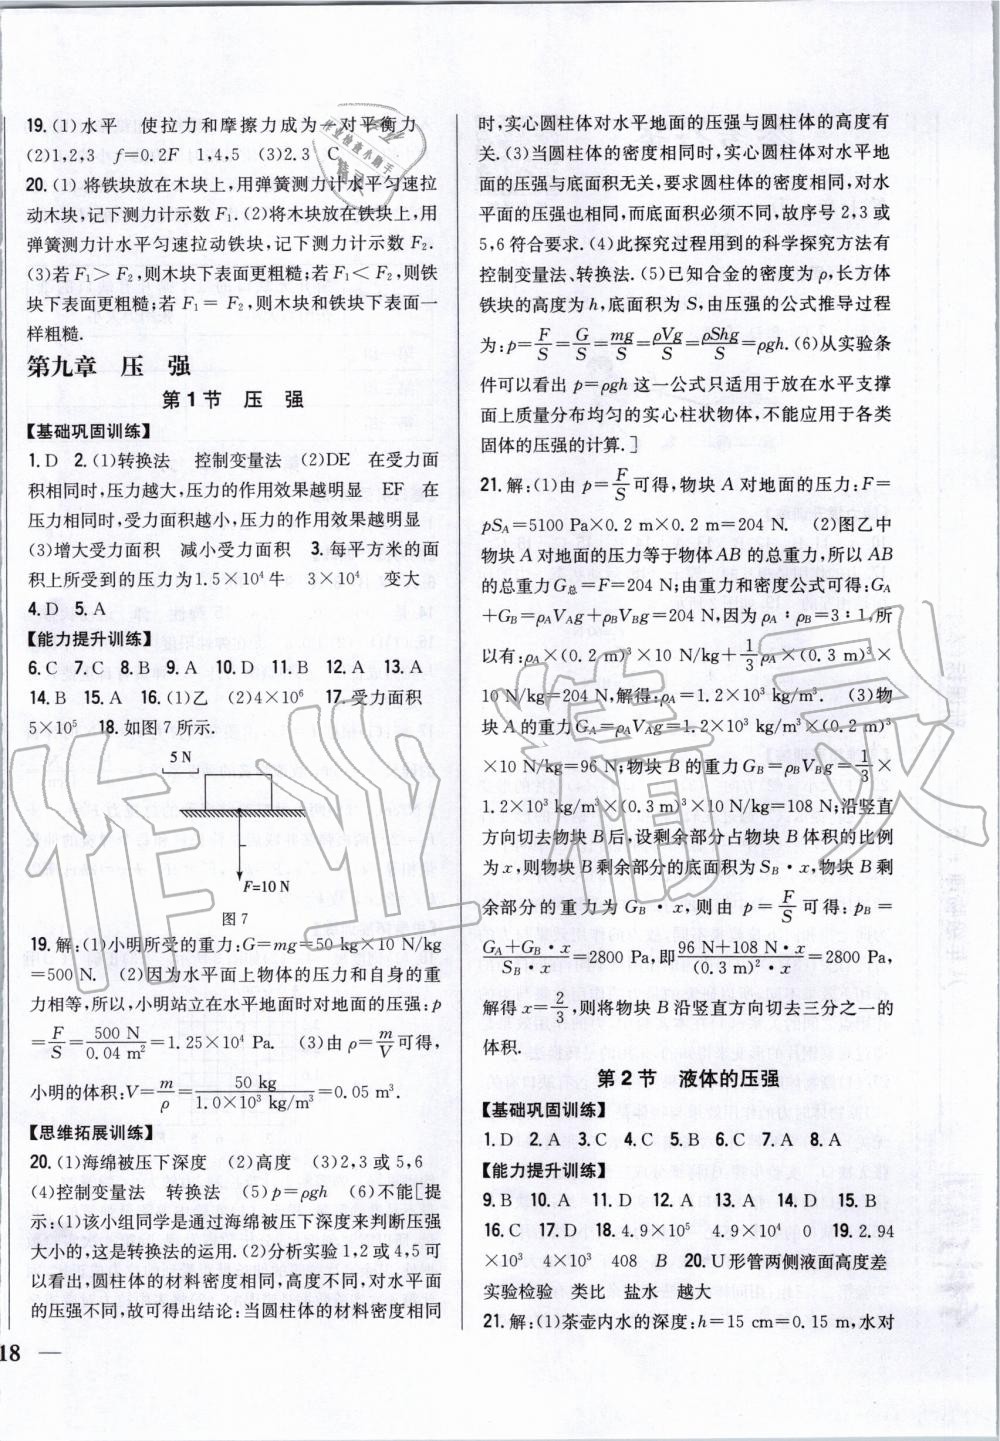 19. (1)水平　使拉力和摩擦力成为一对平衡力
(2)1,2,3　f=0.2F　1,4,5　(3)2.3　C
20. (1)将铁块放在木块上,用弹簧测力计水平匀速拉
动木块,记下测力计示数 F₁. (2)将木块放在铁块上,用
弹簧测力计水平匀速拉动铁块,记下测力计示数 F₂.
(3)若 F₁＞F₂,则木块下表面更粗糙;若 F₁＜F₂,则铁
块下表面更粗糙;若 F₁=F₂,则木块和铁块下表面一
样粗糙.
第九章　压　强
第1节　压　强
【基础巩固训练】
1. D　2. (1)转换法　控制变量法　(2)DE　在受力面
积相同时,压力越大,压力的作用效果越明显　EF　在
压力相同时,受力面积越小,压力的作用效果越明显
(3)增大受力面积　减小受力面积　3. 每平方米的面
积上所受到的压力为1.5×10⁴牛　3×10⁴　变大
4. D　5. A
【能力提升训练】
6. C　7. C　8. B　9. A　10. D　11. B　12. A　13. A
14. B　15. A　16. (1)乙　(2)4×10⁶　17. 受力面积
5×10⁵　18. 如图7所示.
5 N
F=10 N
图7
19. 解:(1)小明所受的重力:G=mg=50 kg×10 N/kg
=500 N.　(2)因为水平面上物体的压力和自身的重
力相等,所以,小明站立在水平地面时对地面的压强:p
=F/S=500 N/0.04 m²=1.25×10⁴ Pa.　(3)由 ρ=m/V可得,
小明的体积:V=m/ρ=50 kg/1.0×10³ kg/m³=0.05 m³.
【思维拓展训练】
20. (1)海绵被压下深度　(2)高度　(3)2,3或5,6
(4)控制变量法　转换法　(5)p=ρgh　(6)不能[提
示:(1)该小组同学是通过海绵被压下深度来判断压强
大小的,这是转换法的运用.(2)分析实验1,2或4,5可
以看出,圆柱体的材料密度相同,高度不同,对水平面
的压强不同,故可得出结论:当圆柱体的材料密度相同
18 —
时,实心圆柱体对水平地面的压强与圆柱体的高度有
关.(3)当圆柱体的密度相同时,实心圆柱体对水平地
面的压强与底面积无关,要求圆柱体的密度相同,对水
平面的压强也相同,而底面积必须不同,故序号2,3或
5,6符合要求.(4)此探究过程用到的科学探究方法有
控制变量法、转换法.(5)已知合金的密度为ρ,长方体
铁块的高度为h,底面积为S,由压强的公式推导过程
为:p=F/S=G/S=mg/S=ρVg/S=ρShg/S=ρgh.(6)从实验条
件可以看出 p=ρgh 这一公式只适用于放在水平支撑
面上质量分布均匀的实心柱状物体,不能应用于各类
固体的压强的计算.]
21. 解:(1)由 p=F/S可得,物块A对地面的压力:F=
pS_A=5100 Pa×0.2 m×0.2 m=204 N.　(2)图乙中
物块A对地面的压力等于物体AB的总重力,所以AB
的总重力G总=F=204 N;由重力和密度公式可得:G_A
+G_B=ρ_AV_Ag+ρ_BV_Bg=204 N,因为ρ_A:ρ_B=3:1,所
以有:ρ_A×(0.2 m)³×10 N/kg+1/3ρ_A×(0.3 m)³×
10 N/kg=204 N,解得:ρ_A=1.2×10³ kg/m³.　(3)物
块A的重力G_A=ρ_AV_Ag=1.2×10³ kg/m³×(0.2 m)³
×10 N/kg=96 N;物块B的重力G_B=ρ_BV_Bg=1/3×
1.2×10³ kg/m³×(0.3 m)³×10 N/kg=108 N;沿竖直
方向切去物块B后,设剩余部分占物块B体积的比例
为x,则物块B剩余部分的底面积为S_B·x,物块B剩
余部分的重力为G_B·x,则由 p=F/S可得:p_B=
G_A+G_B·x/S_B·x=2800 Pa,即96 N+108 N·x/(0.3 m)²·x=2800 Pa,
解得x=2/3,则将物块B沿竖直方向切去三分之一的
体积.
第2节　液体的压强
【基础巩固训练】
1. D　2. A　3. C　4. C　5. B　6. C　7. A　8. A
【能力提升训练】
9. B　10. A　11. D　12. A　13. A　14. D　15. B
16. C　17. D　18. 4.9×10⁵　4.9×10⁴　0　19. 2.94
×10³　4×10³　408　B　20. U形管两侧液面高度差
实验检验　类比　盐水　越大
21. 解:(1)茶壶内水的深度:h=15 cm=0.15 m,水对